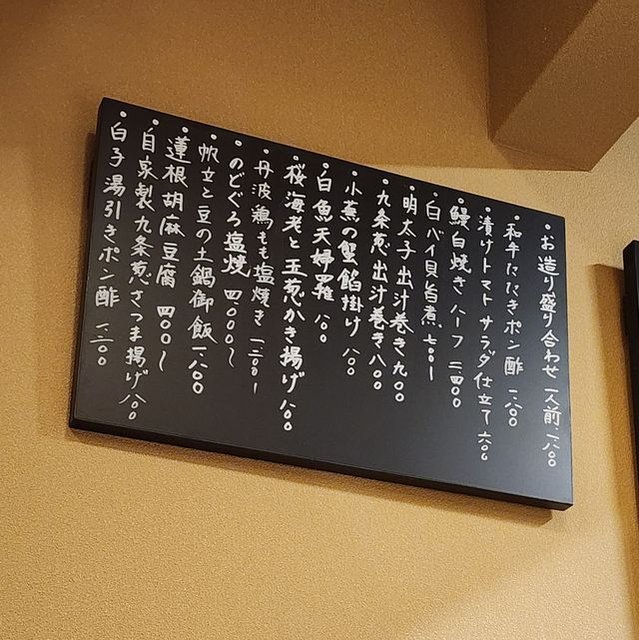 ・お造り盛り合わせ 一人前 一、八〇〇
・和牛たたきポン酢 一、八〇〇
・漬けトマトサラダ仕立て 六〇〇
・鰻白焼き ハーフ 二、四〇〇
・白バイ貝旨煮 七〇〇〜
・明太子出汁巻き 九〇〇
・九条葱出汁巻き 八〇〇
・小蕪の蟹餡掛け 八〇〇
・白魚天婦羅 八〇〇
・桜海老と玉葱かき揚げ 八〇〇
・丹波鶏もも塩焼き 一、二〇〇〜
・のどぐろ塩焼 四〇〇〇〜
・帆立と豆の土鍋御飯 一、八〇〇
・蓮根胡麻豆腐 四〇〇〜
・自家製九条葱さつま揚げ 八〇〇
・白子湯引きポン酢 一、二〇〇